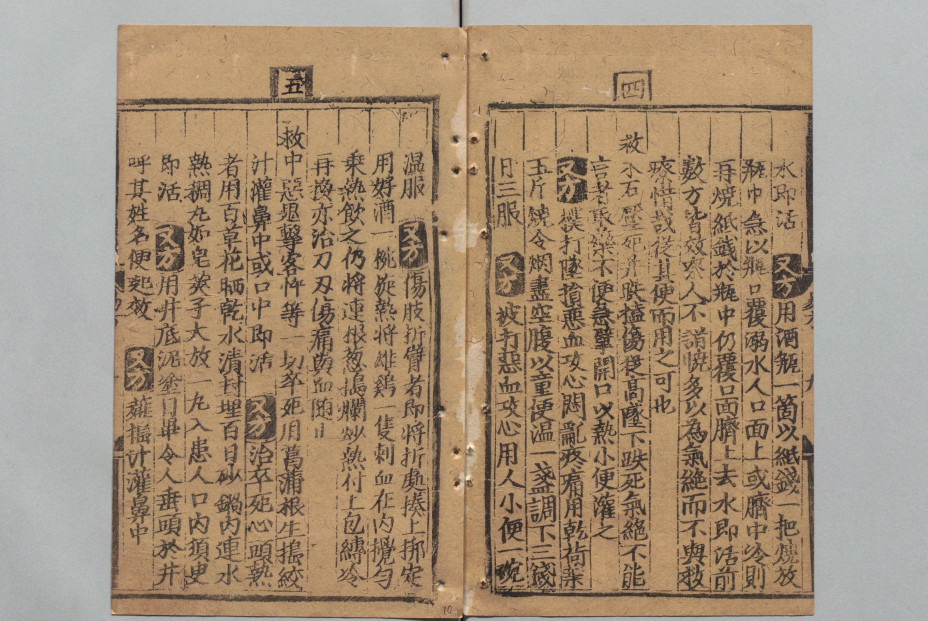 四
水即活 又方 用酒瓶一箇以紙錢一把燒放
瓶中急以瓶口覆溺水人口面上或臍中冷則
再燒紙錢於瓶中仍覆口面臍上去水即活前
數方皆效人不諳曉多以為氣絕而不與救
療惜哉從其便而用之可也
救水石壓死并跌搕傷從高墜下跌死氣絕不能
言者藥不便急擘開口以熱小便灌之
又方 撲打墜損惡血攻心悶亂疼痛用乾荷葉
五斤燒令烟盡空腹以童便温一盞調下三錢
日三服 又方 被打惡血攻心用人小便一碗
五
温服 又方 傷肢折臂者即將折處揍上挷定
用好酒一碗旋熱將雄鷄一隻刺血在内攪勻
乗熱飲之仍將連根葱搗爛炒熱付上包縛冷
再換亦治刀刃傷痛與血隨止
救中惡鬼擊客忤等一切卒死用菖蒲根生搗絞
汁灌鼻中或口中即活 又方 治卒死心頭熱
者用百草花晒乾水清封埋百日砂鍋内連水
熱稠丸如皂莢子大放一丸入患人口内須臾
即活 又方 用井底泥塗目畢令人垂頭於井
呼其姓名便起效 又方 薤搗汁灌鼻中
10